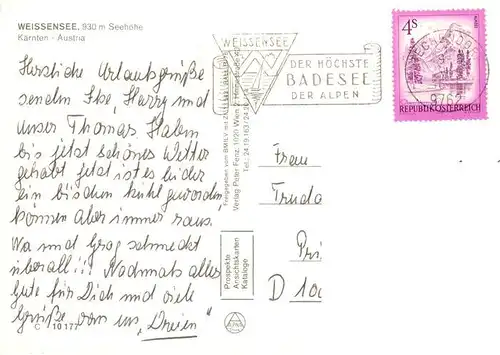 WEISSENSEE, 930 m Seehöhe
Kärnten - Austria
Herzliche Urlaubsgrüße
senden Ilse, Harry und
unser Thomas. Haben
bis jetzt schönes Wetter
gehabt jetzt ist es leider
ein bisschen kühl geworden,
können aber immer raus.
Wo und Grog schmeckt
überall!!! Nochmals alles
Gute für Dich und viele
Grüße von uns "Dreien"
C 10177
WEISSENSEE
DER HÖCHSTE
BADESEE
DER ALPEN
4S
REPUBLIK ÖSTERREICH
9762
Verlag Peter Fenz, 1020 Wien,
Tel.: 24 19 163/24
Prospekte
Ansichtskarten
Kataloge
Frau
Truda
D 100